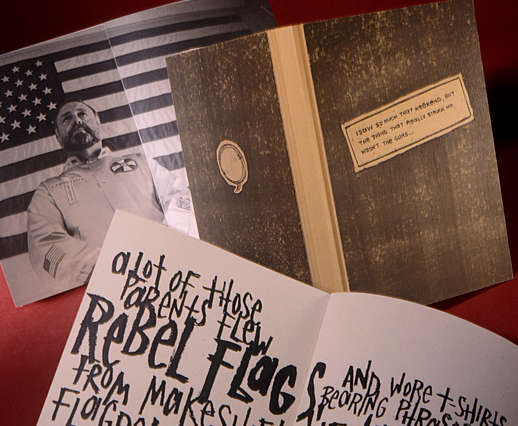 I SAW SO MUCH THAT WEEKEND, BUT
THE THING THAT REALLY STRUCK ME,
WASN'T THE GUNS...
A LOT OF THOSE
PARENTS FLEW
REBEL FLAGS,
FROM
AND WORE T-SHIRTS
BEARING